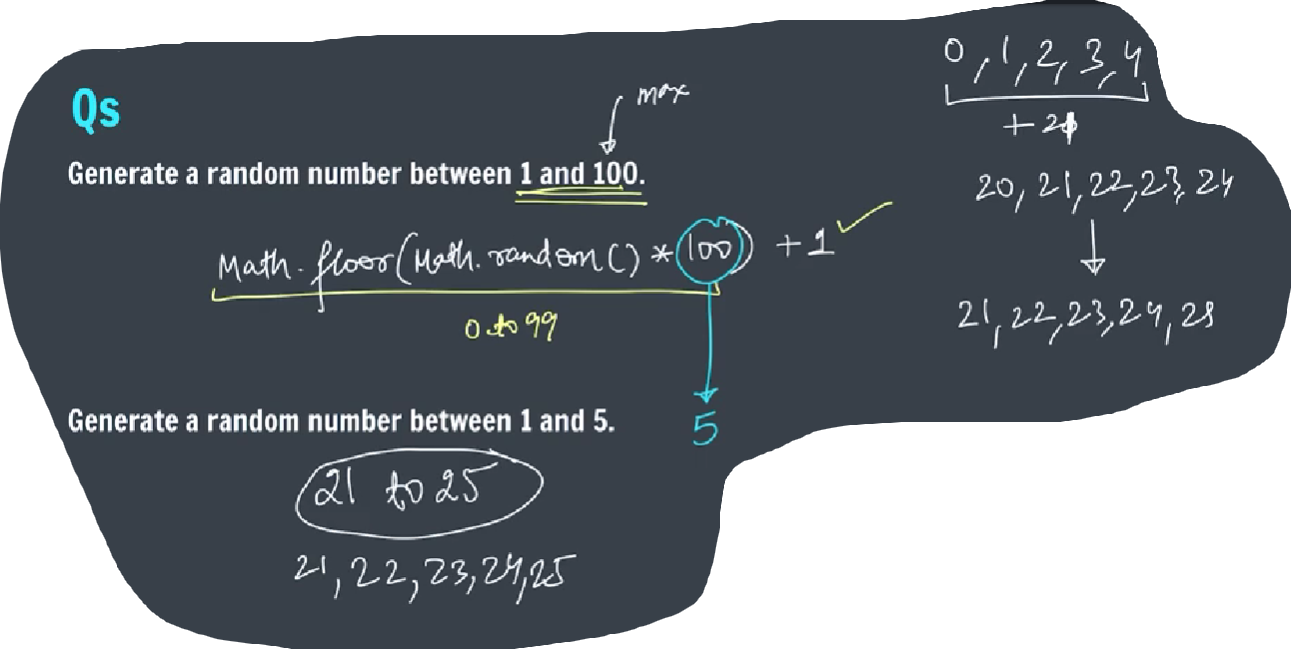 Qs
max
Generate a random number between 1 and 100.
Math.floor(Math.random() * 100) + 1
0 to 99
5
Generate a random number between 1 and 5.
21 to 25
21, 22, 23, 24, 25
0, 1, 2, 3, 4
20, 21, 22, 23, 24
21, 22, 23, 24, 25